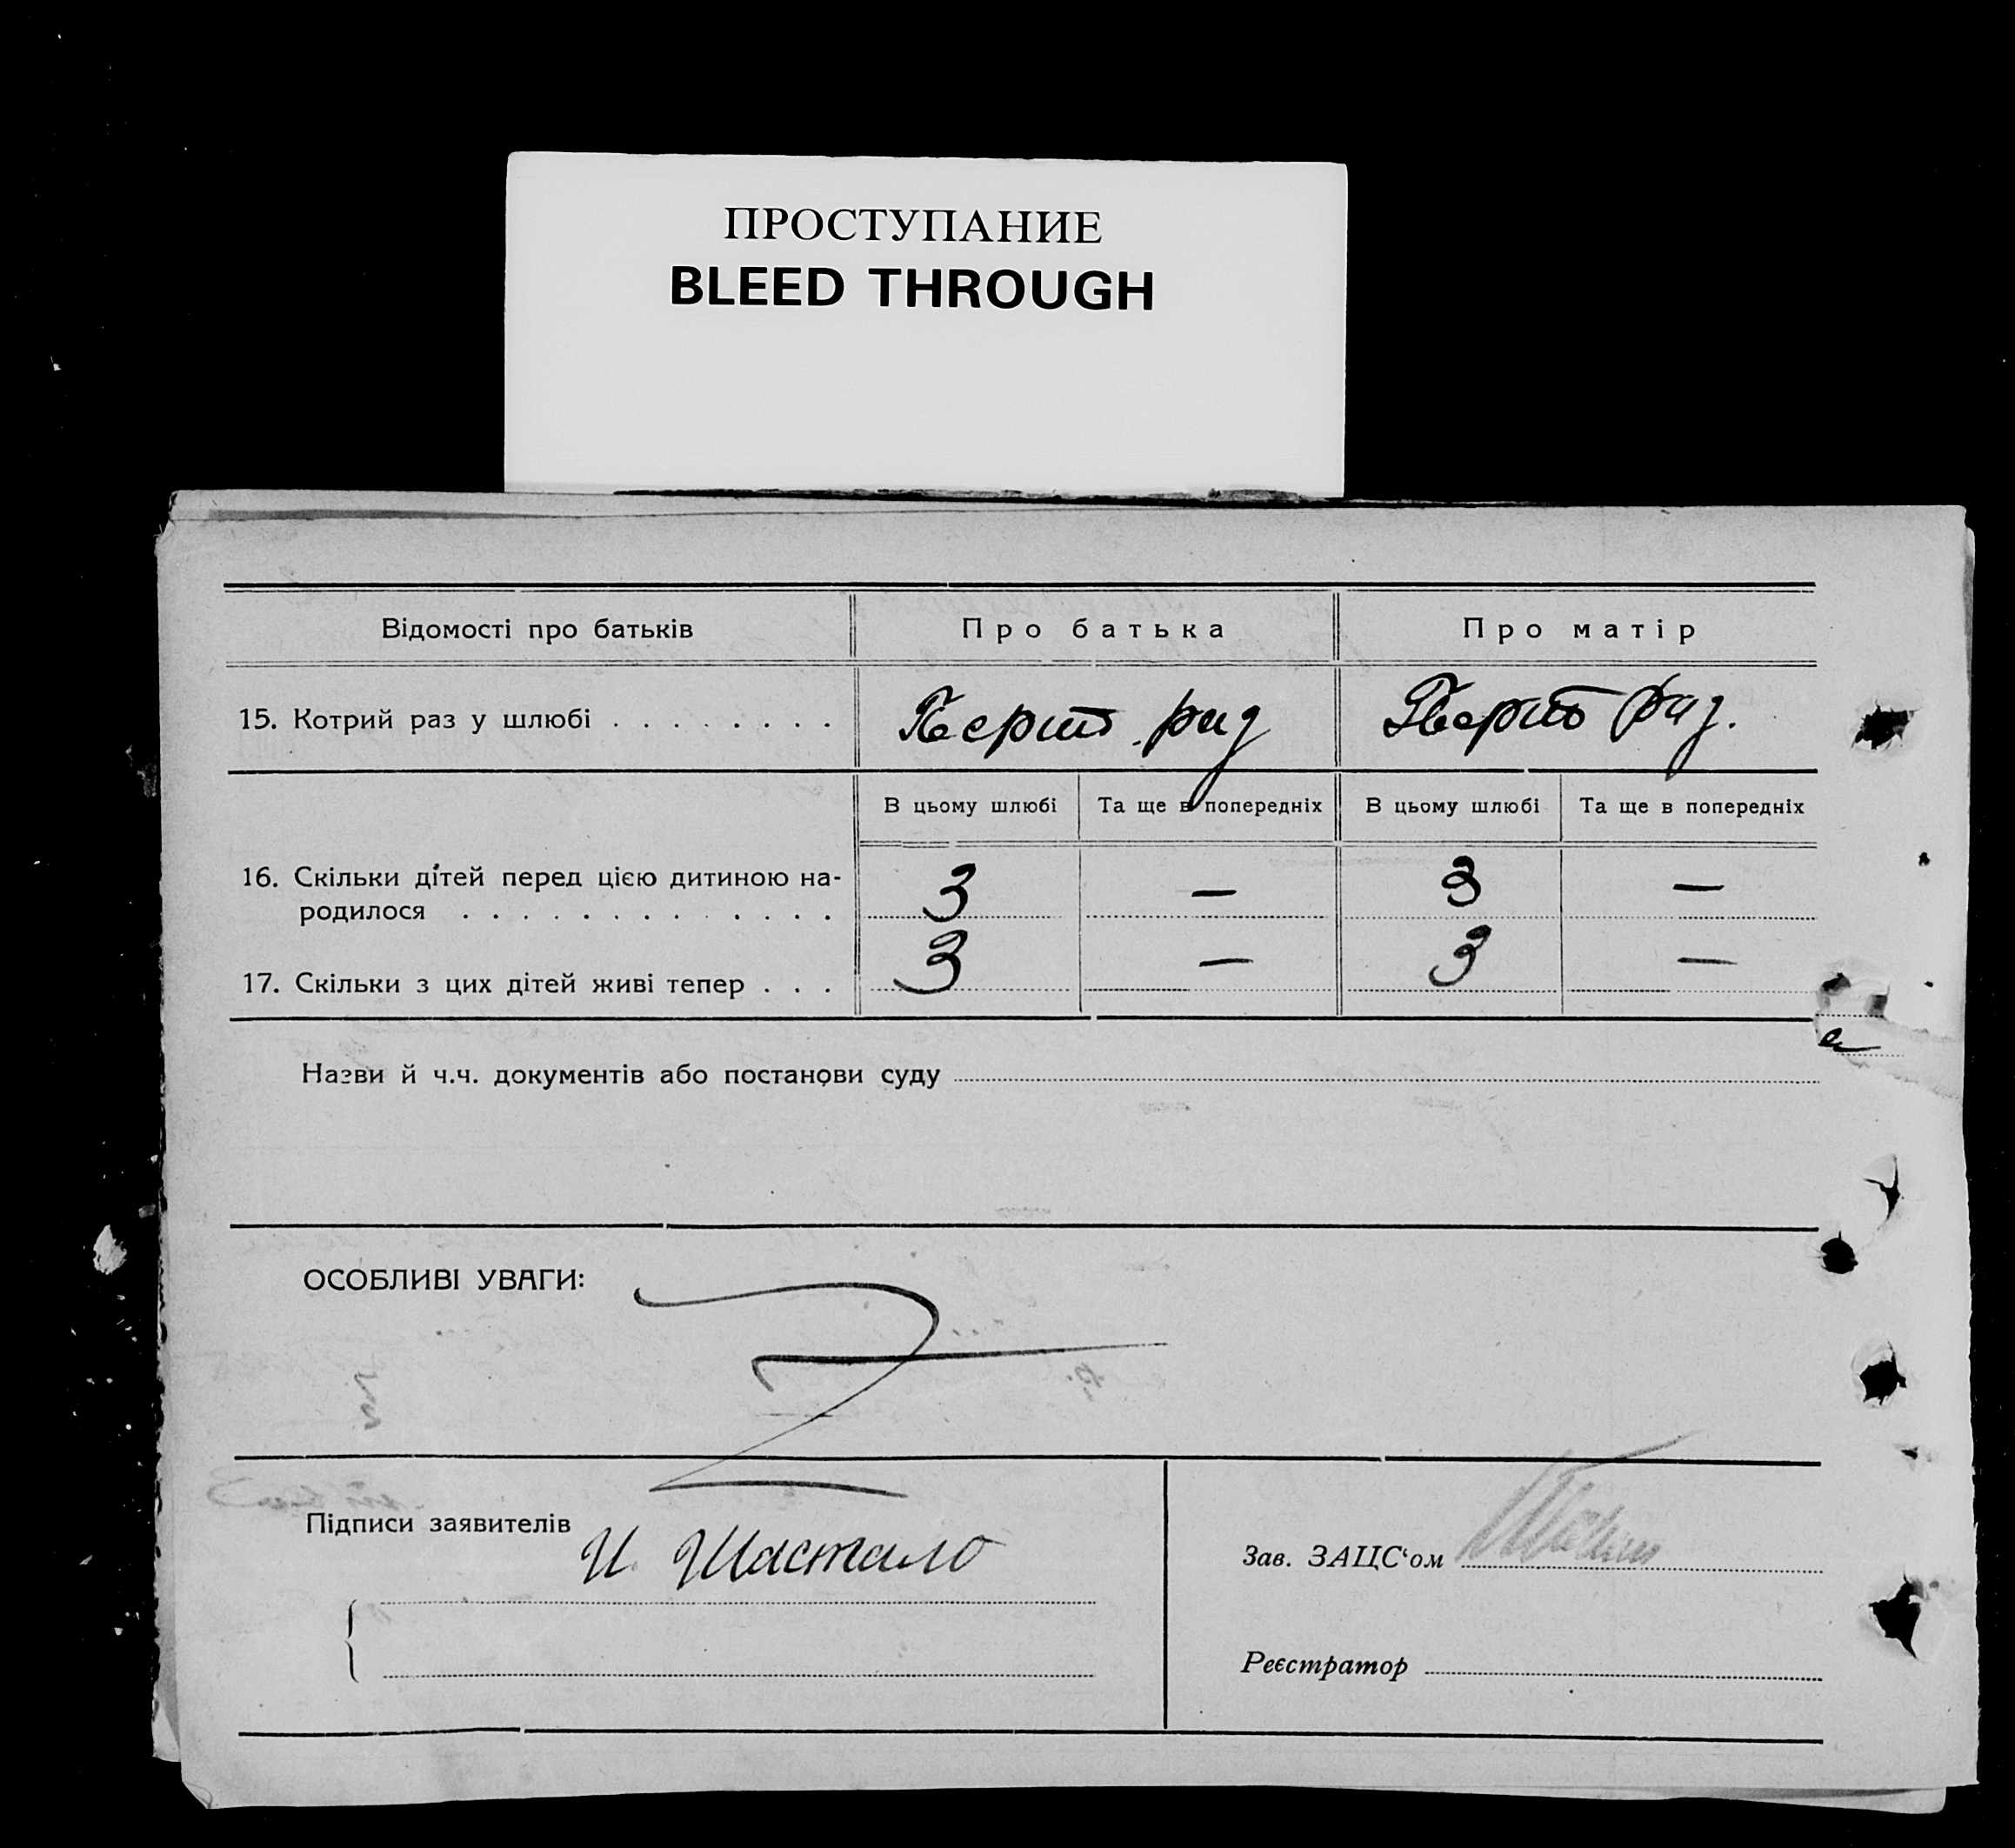 ПРОСТУПАНИЕ
BLEED THROUGH
Відомості про батьків Про батька Про матір
15. Котрий раз у шлюбі . . . . . . . . раз раз.
В цьому шлюбі Та ще в попередніх В цьому шлюбі Та ще в попередніх
16. Скільки дітей перед цією дитиною на-
родилося . . . . . . . . . . . . . 3 — 3 —
17. Скільки з цих дітей живі тепер . . . 3 — 3 —
Назви й ч.ч. документів або постанови суду
ОСОБЛИВІ УВАГИ:
Підписи заявителів И. Шастало
Зав. ЗАЦС‘ом
Реєстратор